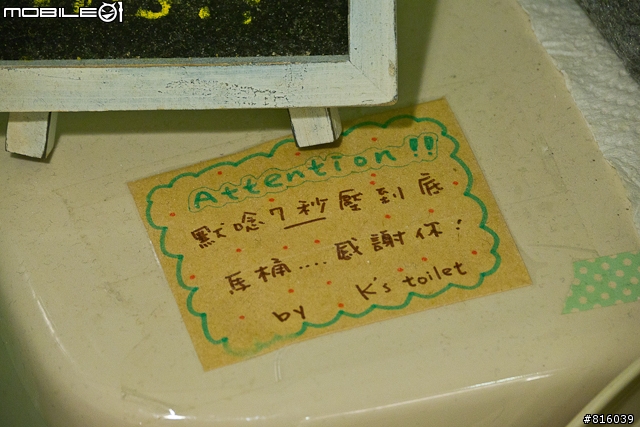 MOBILE01
Attention!!
默唸7秒壓到底
馬桶....感謝你!
by K's toilet
#816039